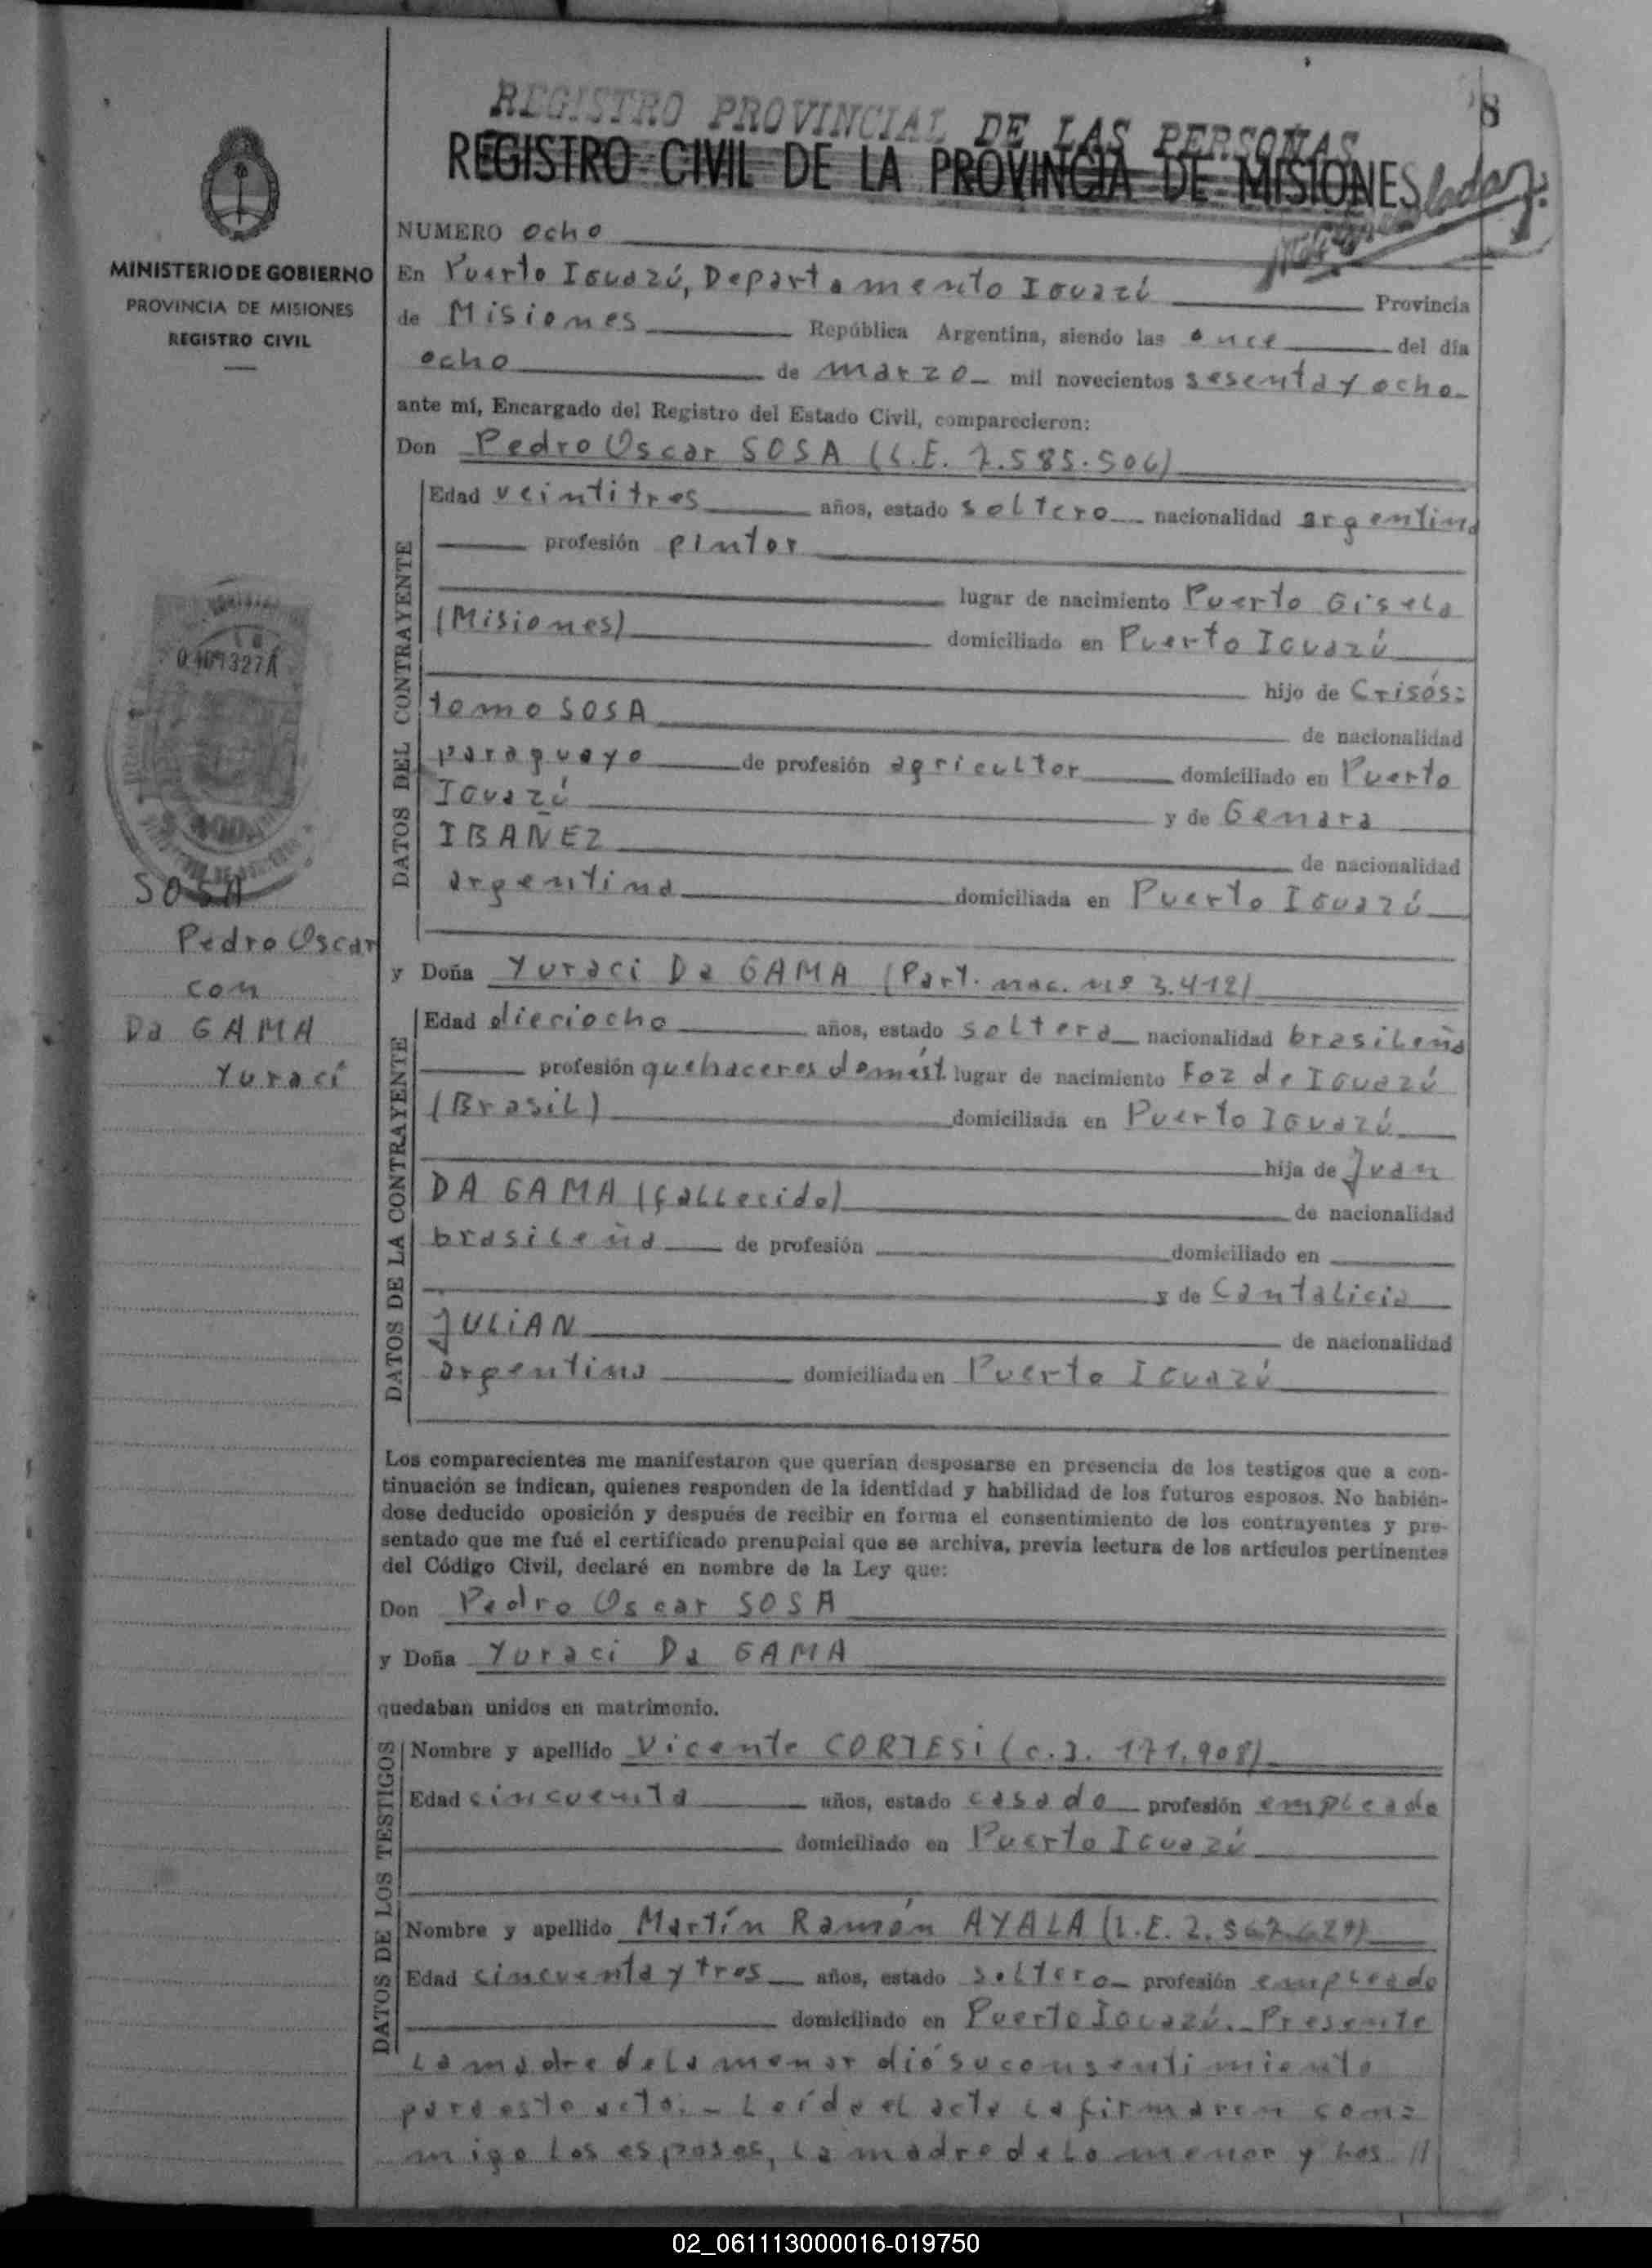 8
REGISTRO PROVINCIAL DE LAS PERSONAS
REGISTRO CIVIL DE LA PROVINCIA DE MISIONES
MINISTERIO DE GOBIERNO
PROVINCIA DE MISIONES
REGISTRO CIVIL
NUMERO Ocho
En Puerto Iguazú, Departamento Iguazú Provincia
de Misiones República Argentina, siendo las once del día
ocho de marzo mil novecientos sesenta y ocho
ante mí, Encargado del Registro del Estado Civil, comparecieron:
Don Pedro Oscar SOSA (L.E. 7.585.506)
DATOS DEL CONTRAYENTE
Edad veintitres años, estado soltero nacionalidad argentina
profesión pintor
lugar de nacimiento Puerto Gisela
(Misiones) domiciliado en Puerto Iguazú
hijo de Crisós=
tomo SOSA de nacionalidad
paraguayo de profesión agricultor domiciliado en Puerto
Iguazú y de Genara
IBAÑEZ de nacionalidad
argentina domiciliada en Puerto Iguazú
SOSA
Pedro Oscar
con
Da GAMA
Yuraci
y Doña Yuraci Da GAMA (Part. nac. nº 3.412)
DATOS DE LA CONTRAYENTE
Edad dieciocho años, estado soltera nacionalidad brasileña
profesión quehaceres domést. lugar de nacimiento Foz de Iguazú
(Brasil) domiciliada en Puerto Iguazú
hija de Juan
DA GAMA (fallecido) de nacionalidad
brasileña de profesión domiciliado en
y de Cantalicia
JULIAN de nacionalidad
argentina domiciliada en Puerto Iguazú
Los comparecientes me manifestaron que querían desposarse en presencia de los testigos que a con-
tinuación se indican, quienes responden de la identidad y habilidad de los futuros esposos. No habién-
dose deducido oposición y después de recibir en forma el consentimiento de los contrayentes y pre-
sentado que me fué el certificado prenupcial que se archiva, previa lectura de los artículos pertinentes
del Código Civil, declaré en nombre de la Ley que:
Don Pedro Oscar SOSA
y Doña Yuraci Da GAMA
quedaban unidos en matrimonio.
DATOS DE LOS TESTIGOS
Nombre y apellido Vicente CORTESI (C.I. 171.908)
Edad cincuenta años, estado casado profesión empleado
domiciliado en Puerto Iguazú
Nombre y apellido Martín Ramón AYALA (L.E. 2.567.629)
Edad cincuenta y tres años, estado soltero profesión empleado
domiciliado en Puerto Iguazú. Presente
la madre de la menor dió su consentimiento
para este acto. - Leída el acta la firmaron con=
migo los esposos, la madre de la menor y los //
02_061113000016-019750